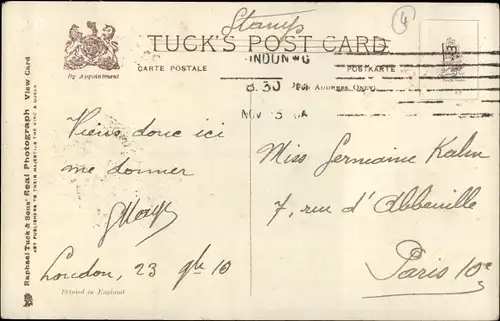 Stamps
4
TUCK'S POST CARD
By Appointment
CARTE POSTALE
POSTKARTE
(For Address Only)
LONDON
8.30
NOV
Raphael Tuck & Sons' Real Photograph View Card
ART PUBLISHERS TO THEIR MAJESTIES THE KING & QUEEN
Viens donc ici
me donner
London, 23 10
Printed in England
Miss Germaine Kahn
7, rue d'Abbeville
Paris 10e